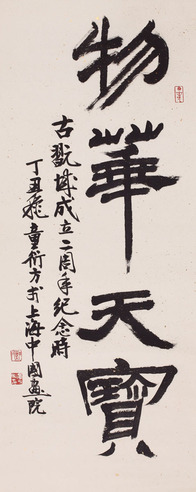 物華天寶
古戲城成立二周年紀念時
丁丑秋童衍方于上海中國畫院